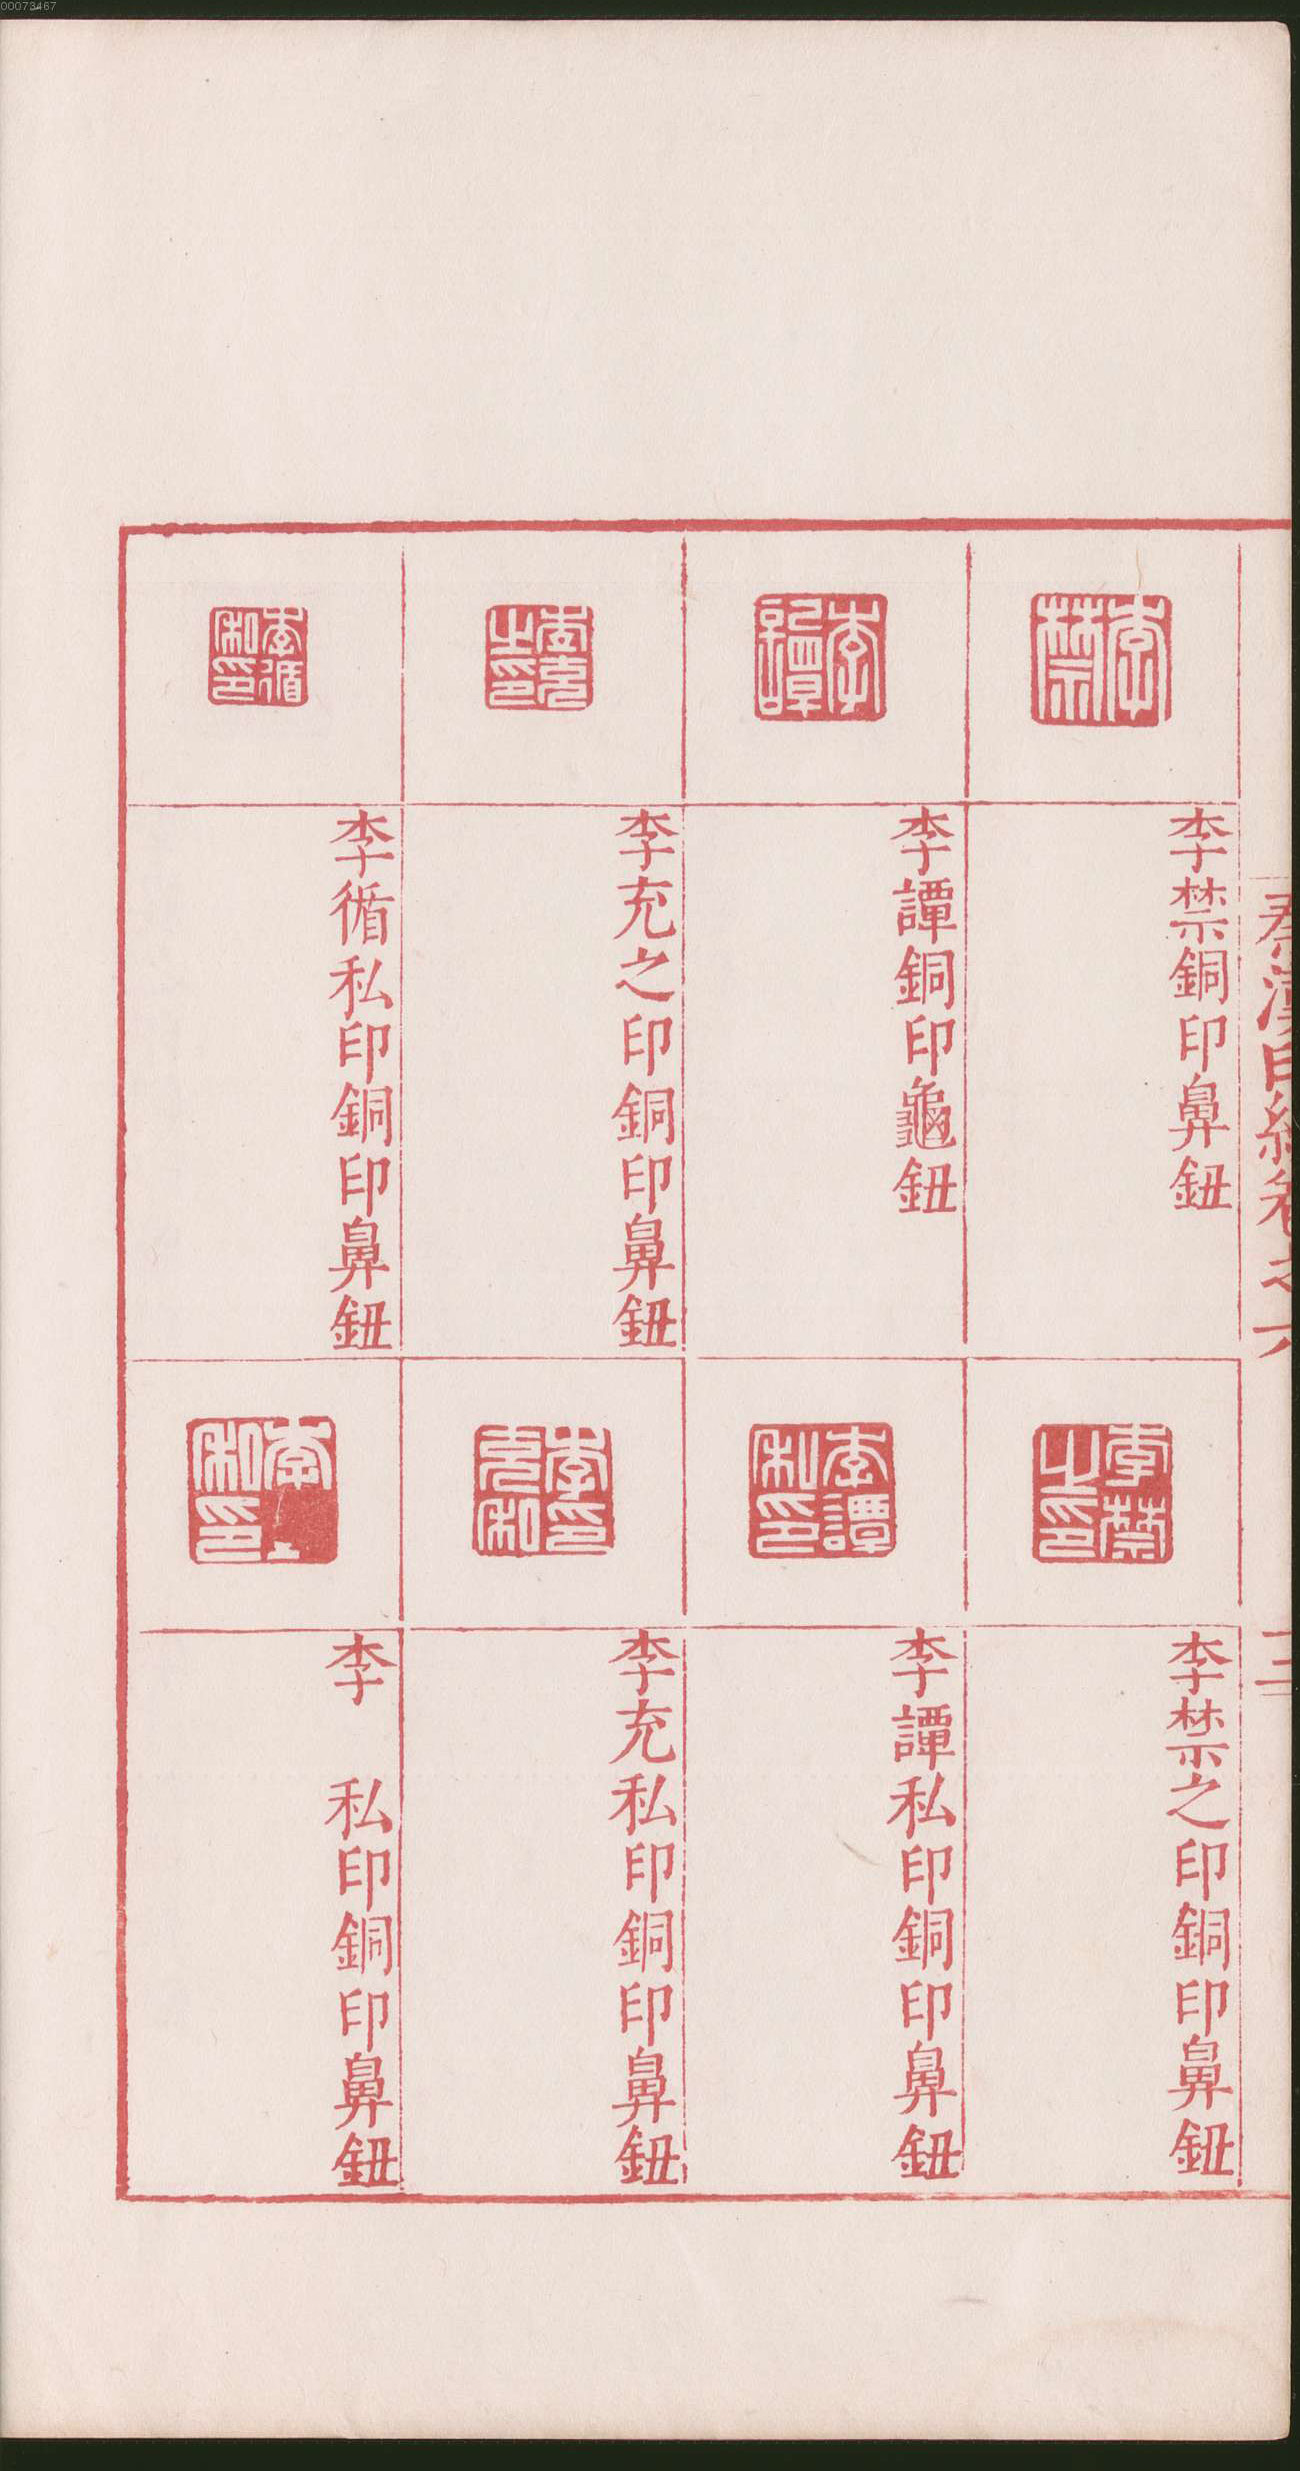 00073467
秦漢印統卷之六
三
李禁
李禁銅印鼻鈕
李譚
李譚銅印龜鈕
李充之印
李充之印銅印鼻鈕
李循私印
李循私印銅印鼻鈕
李禁之印
李禁之印銅印鼻鈕
李譚私印
李譚私印銅印鼻鈕
李印充私
李充私印銅印鼻鈕
李 私印
李 私印銅印鼻鈕